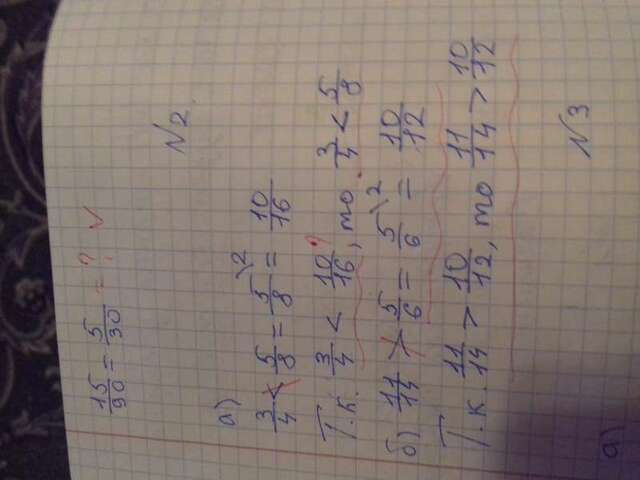 15/90 = 5/30 = ? √
N2.
а)
3/4 < 5/8 = 5/8 \2 = 10/16
Т.к. 3/4 < 10/16, то 3/4 < 5/8
б) 11/14 > 5/6 = 5/6 \2 = 10/12
Т.к. 11/14 > 10/12, то 11/14 > 10/12
N3
а)